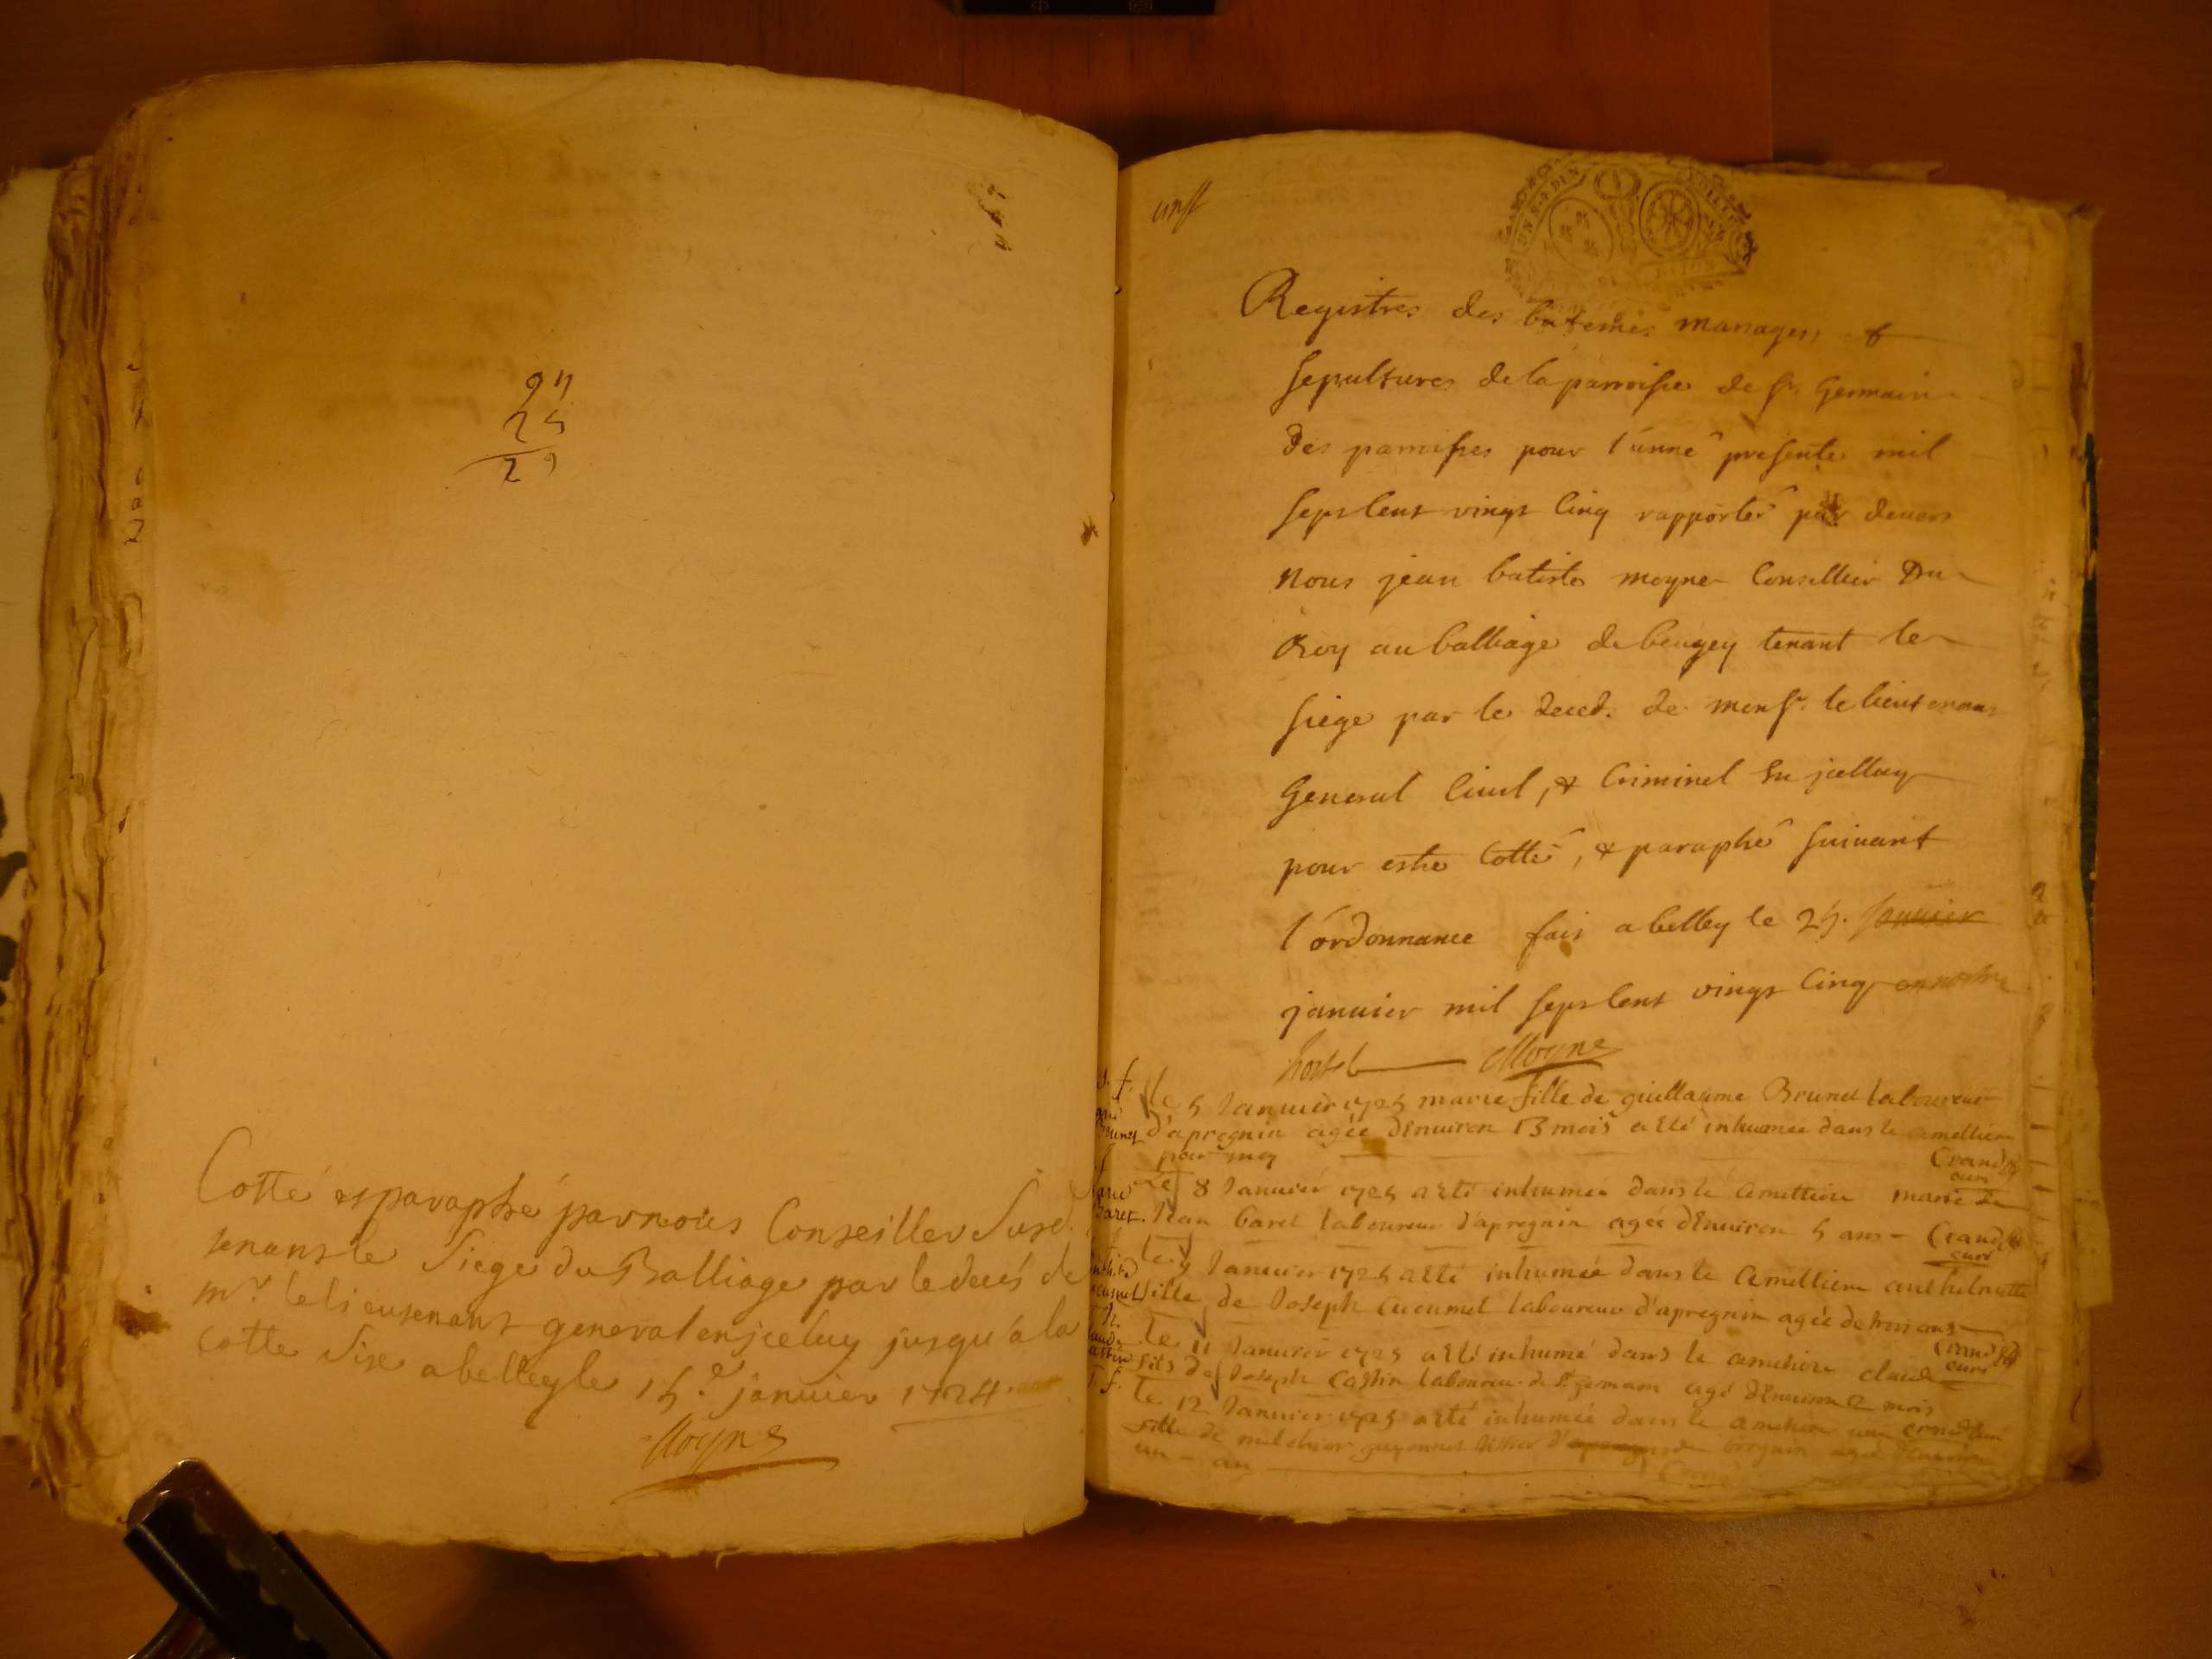 24
25
29
Cotté et paraphé par nous Conseiller Susd.
tenant le Siege du Balliage par le decés de
mr. le lieutenant general en jceluy jusqu'à la
cotte Six a belley le 15.e janvier 1724
Moyne
Registres des batemes mariages et
sepultures de la parroisse de st. Germain
des parroisses pour l'anné presente mil
sept cent vingt cinq rapporté par devers
Nous jean batiste moyne Conseillier Du
Roy au balliage de beugey tenant le
siege par le deced. de monsr. le lieutenant
General Civil, & Criminel En jcelluy
pour estre Cotté, & paraphé suivant
l'ordonnance fait a belley le 25. janvier
janvier mil sept cent vingt cinq en nostre
hostel Moyne
le 5 Janvier 1725 marie fille de guillaume Brunet laboureur
d'apregnin agée d'Environ 13 mois a Eté inhumée dans le cimettiere
par moy
Le 8 Janvier 1725 a Eté inhumée dans le Cimettiere marie de
Jean baret laboureur d'apregnin agée d'Environ 5 ans curé
le 9 Janvier 1725 a Eté inhumée dans le Cimettiere anthelmette
fille de Joseph Cucumel laboureur d'apregnin agée de trois ans
le 11 Janvier 1725 a Eté inhumé dans le cimetiere claude curé
fils de Joseph Castin laboureur de st. germain agé d'Environ 2 mois
le 12 Janvier 1725 a Eté inhumée dans le cimetiere une
fille de melchior guyonnet agée d'Environ
un an